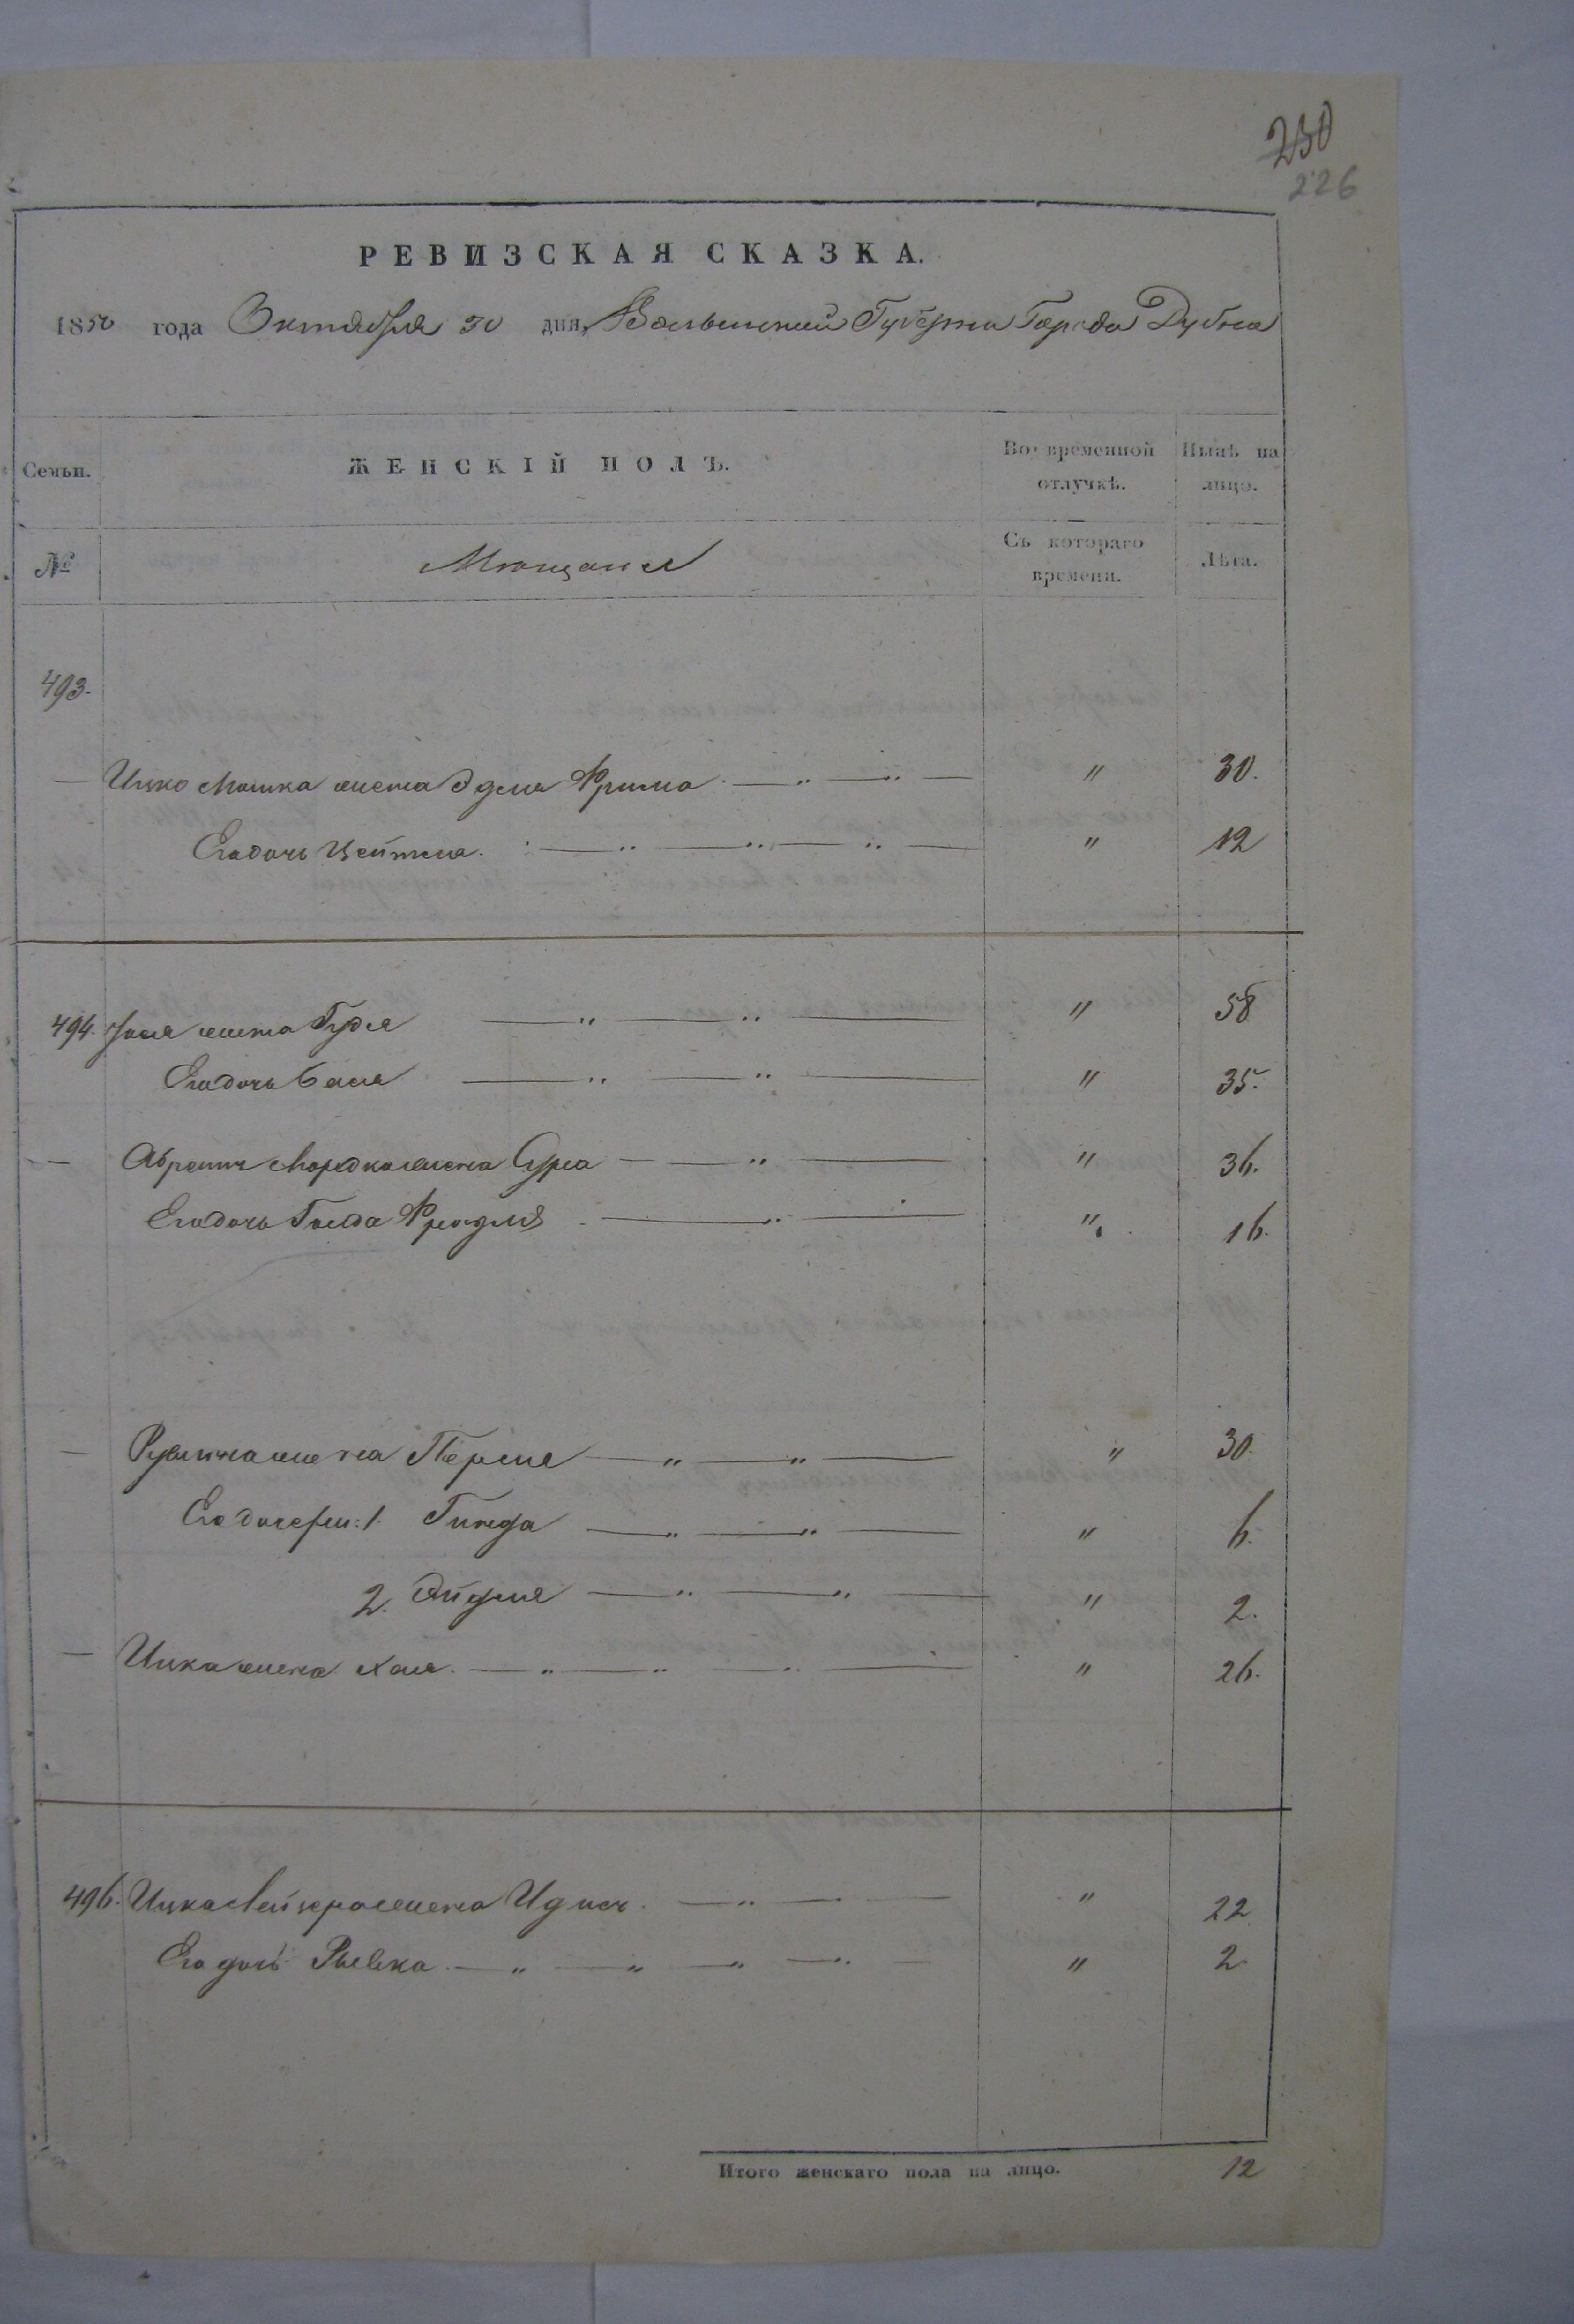 230
226
РЕВИЗСКАЯ СКАЗКА.
1850 года Октября 30 дня, Волынской Губернии Города Дубна
Семьи. ЖЕНСКІЙ ПОЛЪ. Во временной отлучкѣ. Нынѣ на лицо.
№ Мещане Съ котораго времени. Лѣта.
493.
— Ицко Мошка жена Эдля Фрима " 30.
Его дочь Цейтля. " 12
494. жена Гудя " 58
Его дочь Бася " 35.
— Абрамъ Мордко жена Сура " 36.
Его дочь Голда Фрейдля " 16.
— Рувина жена Перля " 30.
Его дочери: 1. Гинда " 6.
2. Эйдля " 2.
— Ицка жена Хая. " 26.
496. Ицка Лейзера жена Идисъ. " 22
Его дочь Рывка " 2
Итого женскаго пола на лицо. 12